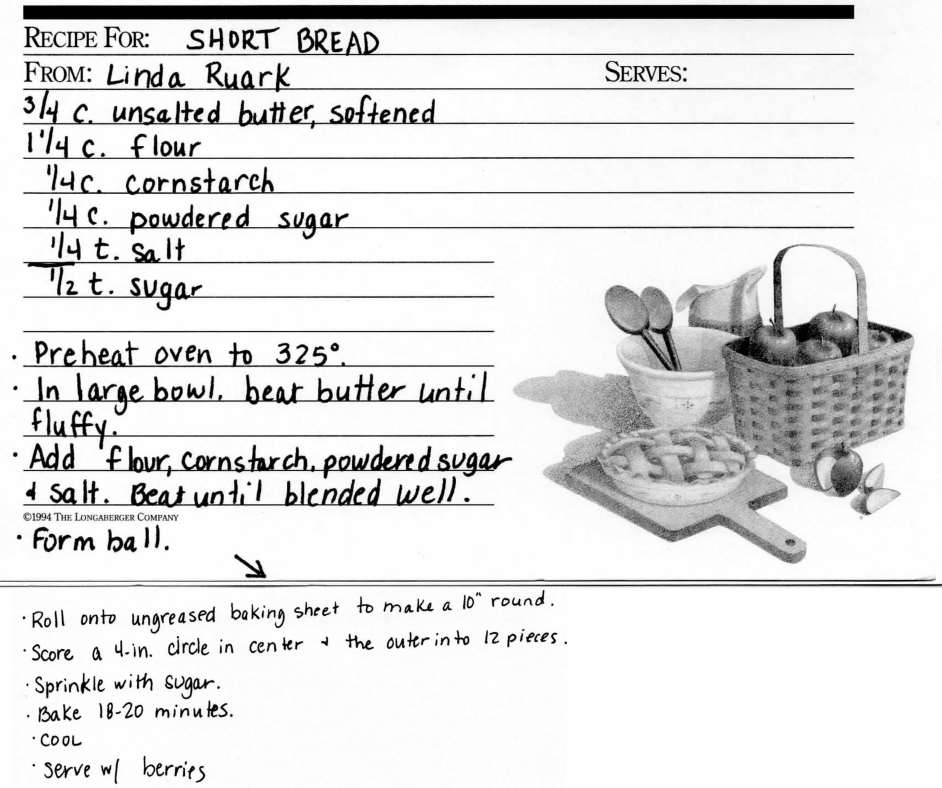 RECIPE FOR: SHORT BREAD
FROM: Linda Ruark SERVES:
3/4 c. unsalted butter, softened
1 1/4 c. flour
1/4 c. cornstarch
1/4 c. powdered sugar
1/4 t. salt
1/2 t. sugar
· Preheat oven to 325°.
· In large bowl, beat butter until
fluffy.
· Add flour, cornstarch, powdered sugar
& salt. Beat until blended well.
©1994 THE LONGABERGER COMPANY
· Form ball.
· Roll onto ungreased baking sheet to make a 10" round.
· Score a 4-in. circle in center & the outer into 12 pieces.
· Sprinkle with sugar.
· Bake 18-20 minutes.
· COOL
· Serve w/ berries